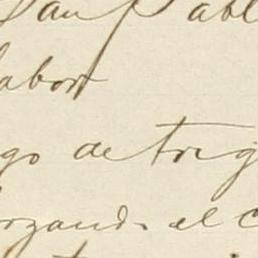 San Pabl
labor
go de trig
orzando el c